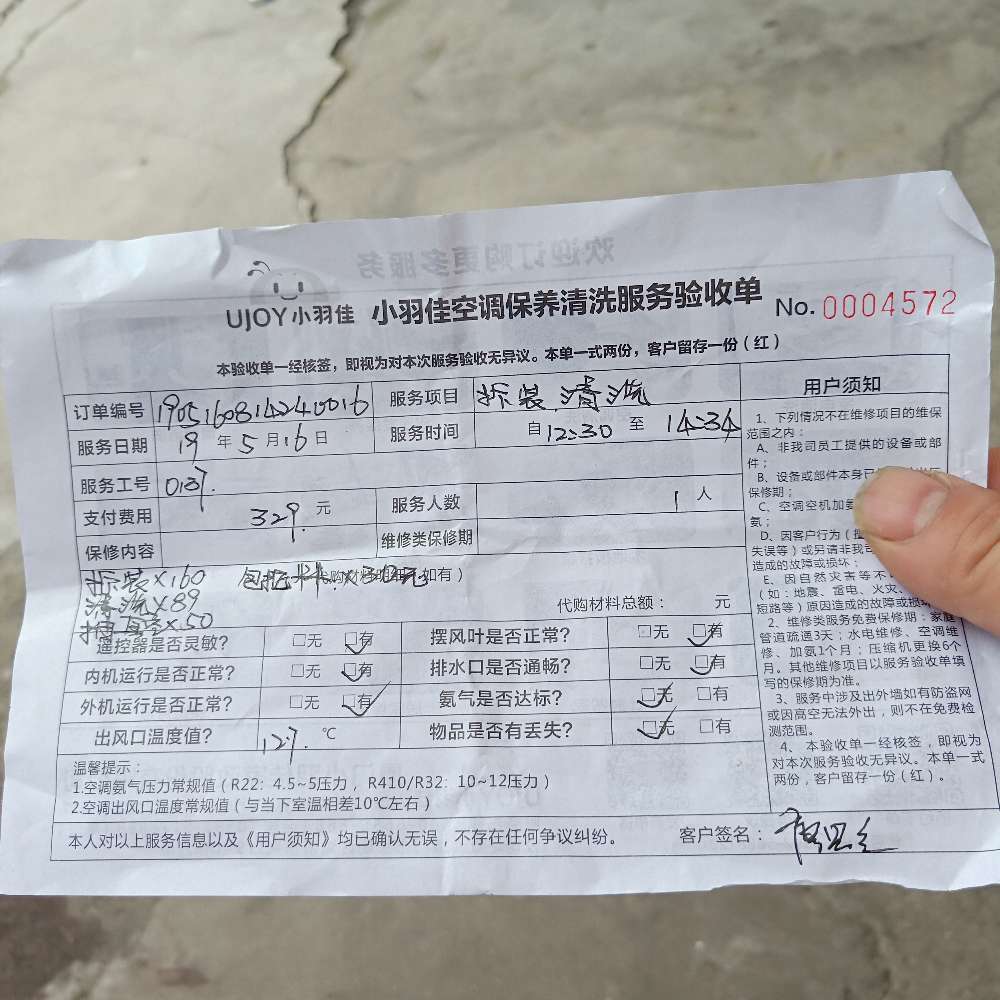 欢迎订购更多服务
UJOY小羽佳 小羽佳空调保养清洗服务验收单 No. 0004572
本验收单一经核签，即视为对本次服务验收无异议。本单一式两份，客户留存一份（红）
订单编号 1905160814240016 服务项目 拆装.清洗
服务日期 19 年 5 月 16 日 服务时间 自 12:30 至 14:34
服务工号 0137.
支付费用 329. 元 服务人数 1 人
保修内容 维修类保修期
拆装×160
清洗×89
×50
代购材料总额： 元
遥控器是否灵敏？ □无 □有 摆风叶是否正常？ □无 □有
内机运行是否正常？ □无 □有 排水口是否通畅？ □无 □有
外机运行是否正常？ □无 □有 氨气是否达标？ □无 □有
出风口温度值？ 127. ℃ 物品是否有丢失？ □无 □有
温馨提示：
1.空调氨气压力常规值（R22: 4.5~5压力 , R410/R32: 10~12压力）
2.空调出风口温度常规值（与当下室温相差10℃左右）
本人对以上服务信息以及《用户须知》均已确认无误，不存在任何争议纠纷。 客户签名：
用户须知
1、下列情况不在维修项目的维保
范围之内：
A、非我司员工提供的设备或部
件；
B、设备或部件本身已
保修期；
C、空调空机加氨
氨；
D、因客户行为（
失误等）或另请非我司
造成的故障或损坏；
E、因自然灾害等不
（如：地震、雷电、火灾、
短路等）原因造成的故障或损坏
2、维修类服务免费保修期：家庭
管道疏通3天；水电维修、空调维
修、加氨1个月；压缩机更换6个
月。其他维修项目以服务验收单填
写的保修期为准。
3、服务中涉及出外墙如有防盗网
或因高空无法外出，则不在免费检
测范围。
4、本验收单一经核签，即视为
对本次服务验收无异议。本单一式
两份，客户留存一份（红）。